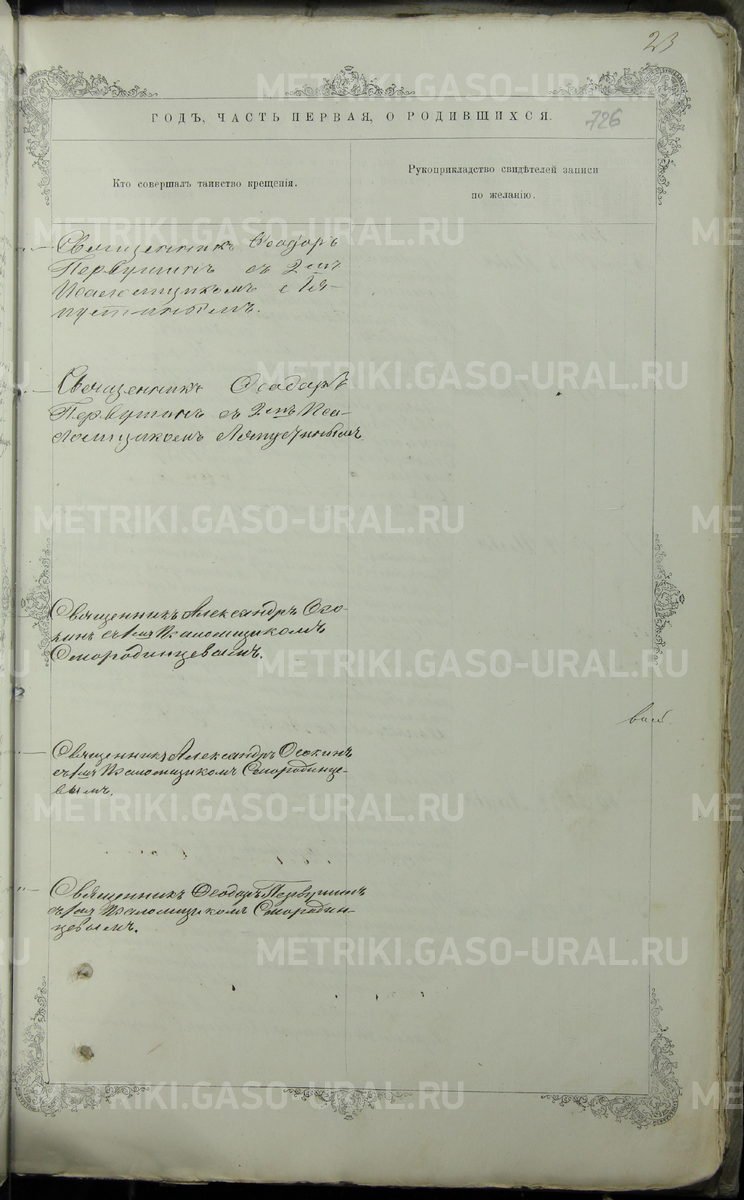 23
ГОДЪ, ЧАСТЬ ПЕРВАЯ, О РОДИВШИХСЯ.
726
Кто совершалъ таинство крещенія.
Рукоприкладство свидѣтелей записи
по желанію.
Священникъ Ѳеодоръ
Первушинъ съ 2мъ
Псаломщикомъ
Священникъ Ѳеодоръ
Первушинъ съ 2мъ Пса-
ломщикомъ
Священникъ Александръ Осо-
кинъ съ 1мъ Псаломщикомъ
Смородинцевымъ.
Священникъ Александръ Осокинъ
съ 1мъ Псаломщикомъ Смородинце-
вымъ.
Священникъ Ѳеодоръ Первушинъ
съ 1мъ Псаломщикомъ Смородин-
цевымъ.
METRIKI.GASO-URAL.RU